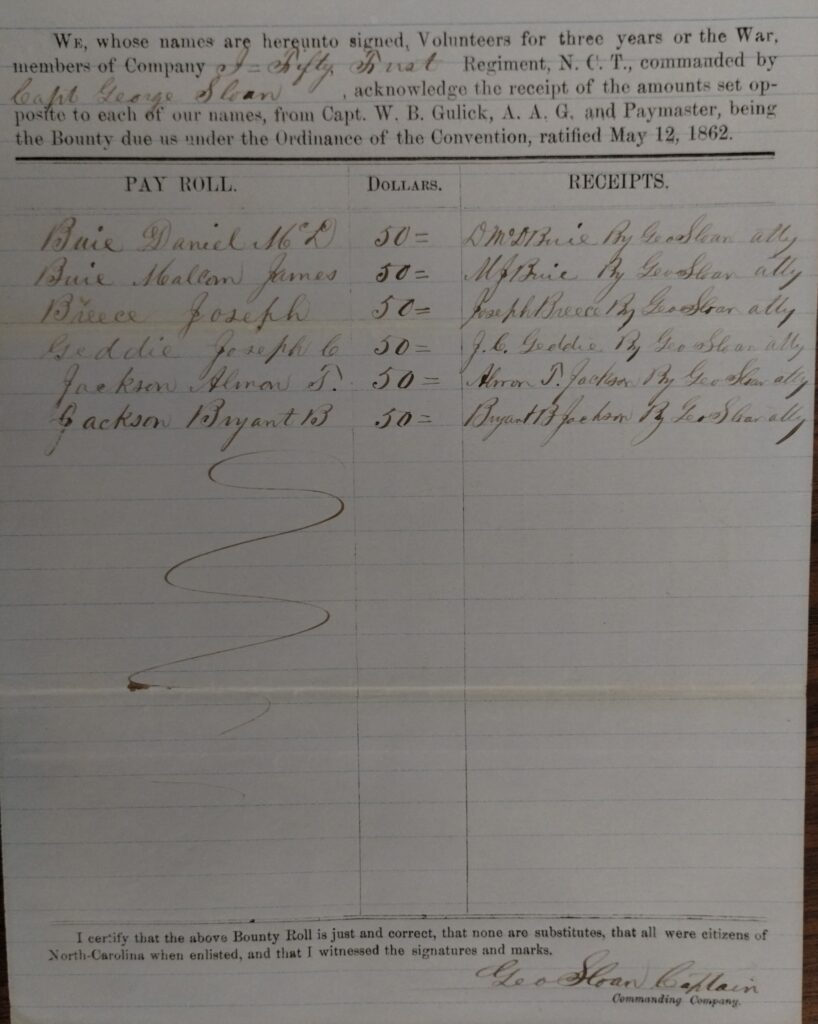 WE, whose names are hereunto signed, Volunteers for three years or the War,
members of Company I = Fifty First Regiment, N. C. T., commanded by
Capt George Sloan , acknowledge the receipt of the amounts set op-
posite to each of our names, from Capt. W. B. Gulick, A. A. G. and Paymaster, being
the Bounty due us under the Ordinance of the Convention, ratified May 12, 1862.
PAY ROLL. DOLLARS. RECEIPTS.
Buie Daniel McD 50= D McD Buie By Geo Sloan atty
Buie Malcom James 50= M J Buie By Geo Sloan atty
Breece Joseph 50= Joseph Breece By Geo Sloan atty
Geddie Joseph C 50= J. C. Geddie By Geo Sloan atty
Jackson Almon T. 50= Almon T. Jackson By Geo Sloan atty
Jackson Bryant B 50= Bryant B Jackson By Geo Sloan atty
I certify that the above Bounty Roll is just and correct, that none are substitutes, that all were citizens of
North-Carolina when enlisted, and that I witnessed the signatures and marks.
Geo Sloan Captain
Commanding Company.